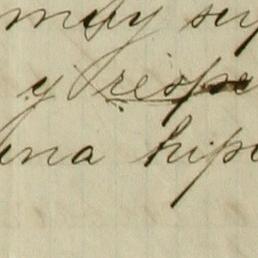 muy sup
y respe
una hipo